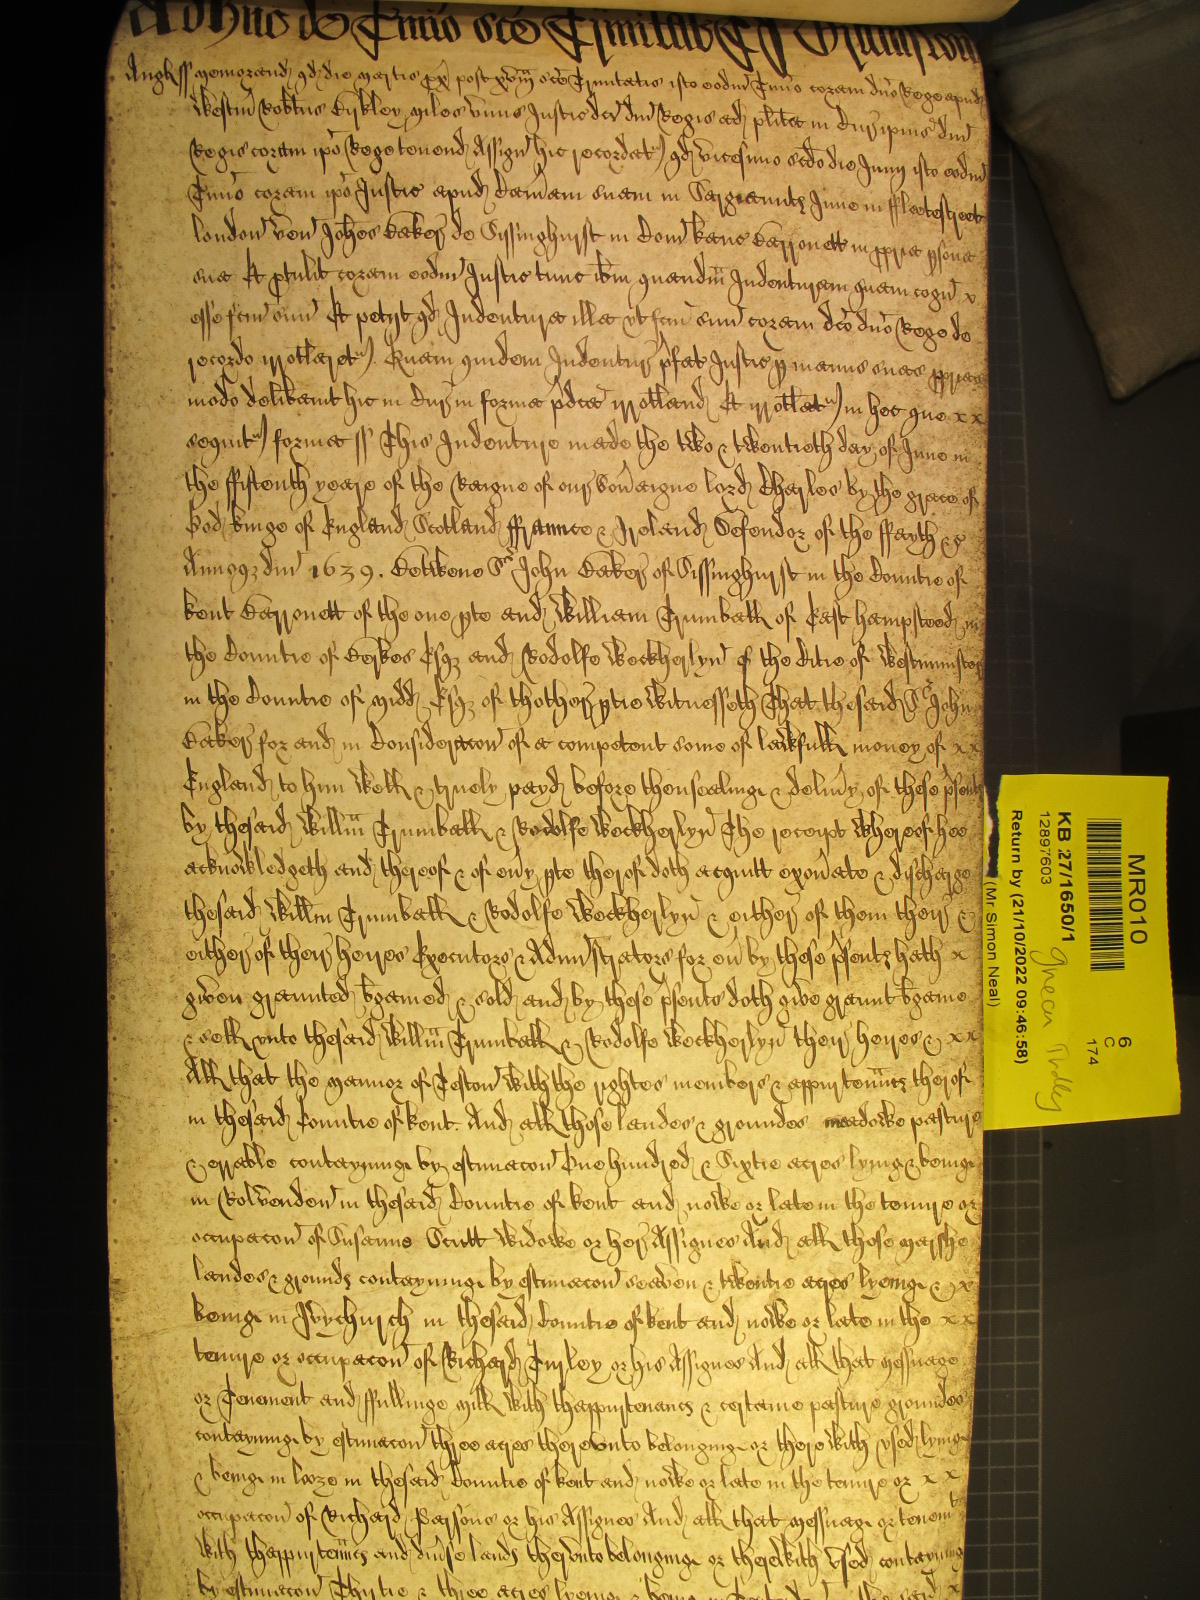 Adhuc de Tmio sce Trinitatis
Anglss Memorand qd die Martis px post xvam sce Trinitatis isto eodm Tmio coram dno Rege apud
Westm Robtus Berkley Miles unus Justic dci dni Regis ad plita in Cur ipius dni
Regis coram ipo Rege tenend Assign hic recordatr qd vicesimo scdo die Junij isto eodm
Tmio coram ipo Justic apud Camam suam in Sargeaunts Inne in ffleetestreet
london ven Johes Baker de Sissinghurst in Com kanc Barronett in ppria psona
sua Et ptulit coram eodm Justic tunc ibm quandm Indenturam quam cogn x
esse fcm suu Et petijt qd Indentura illa ut fcm suu coram dco dno Rege de
recordo irrotlaretr. Quam quidem Indentur pfat Justic p manus suas pprias
modo delibavit hic in Cur in forma pdca irrotland Et irrotlatr in hec que x x
sequitr forma ss This Indenture made the two & twentieth day of June in
the ffifteenth yeare of the Raigne of our Sovaigne lord Charles by the grace of
God kinge of England Scotland ffraunce & Ireland Defendor of the ffayth &c
Annoq dni 1639. Betweene Sr John Baker of Sissinghurst in the Countie of
kent Barronett of the one pte and William Trumball of East hampsteed in
the Countie of Berkes Esqr and Rodolfe Weckherlyn of the Citie of Westminster
in the Countie of Midd Esqr of thother ptie Witnesseth That thesaid Sr John
Baker for and in Consideracon of a competent some of lawfull money of x x
England to him well & truely payd before thensealinge & delivy of these psents
by thesaid Willm Trumball & Rodolfe Weckherlyn The receipt whereof hee
acknowledgeth and thereof & of evy pte therof doth acquitt exonate & discharge
thesaid Willm Trumball & Rodolfe Weckherlyn & either of them their &
either of their heires Executors & Adminstrators for ev by these psents hath x
given graunted bgained & sold and by these psents doth give graunt bgaine
& sell unto thesaid Willm Trumball & Rodolfe Weckherlyn their heires & x x
All that the Mannor of Teston with the rightes members & appurtennces therof
in thesaid Countie of kent. And all those landes & groundes meadowe pasture
& errable contayninge by estimacon One hundred & Sixtie acres lying & beinge
in Rolvenden in thesaid Countie of kent and nowe or late in the tenure or
occupacon of Susanne Scutt widowe or her Assignes And all those Marshe
landes & grounds contayninge by estimacon seaven & twentie acres lyeinge & x
beinge in Ivychurch in thesaid Countie of kent and nowe or late in the x x
tenure or occupacon of Richard Turley or his Assignes And all that Messuage
or Tenement and ffullinge Mill with thappurtenancs & certaine pasture groundes
contayninge by estimacon three acres thereunto belonginge or therewith used lyinge
& beinge in looze in thesaid Countie of kent and nowe or late in the tenure or x x
occupacon of Richard Parsons or his Assignes And all that Messuage or tenemt
with thappurtennces and divse lands therunto belonginge or therewith used contayninge
by estimacon Thirtie & three acres lyeing & beinge in
MR010
6
C
174
KB 27/1650/1
12897603
Return by (21/10/2022 09:46:58)
(Mr Simon Neal)